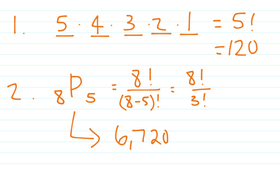 1. 5 · 4 · 3 · 2 · 1 = 5!
= 120
2. ₈P₅ = 8!/(8-5)! = 8!/3!
↳ 6,720